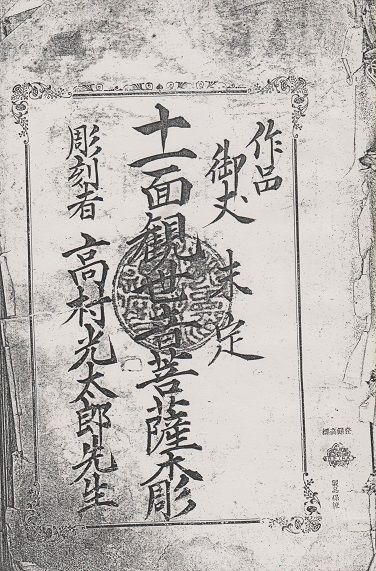 作品
御丈 未定
十一面観世音菩薩木彫
彫刻者 高村光太郎先生